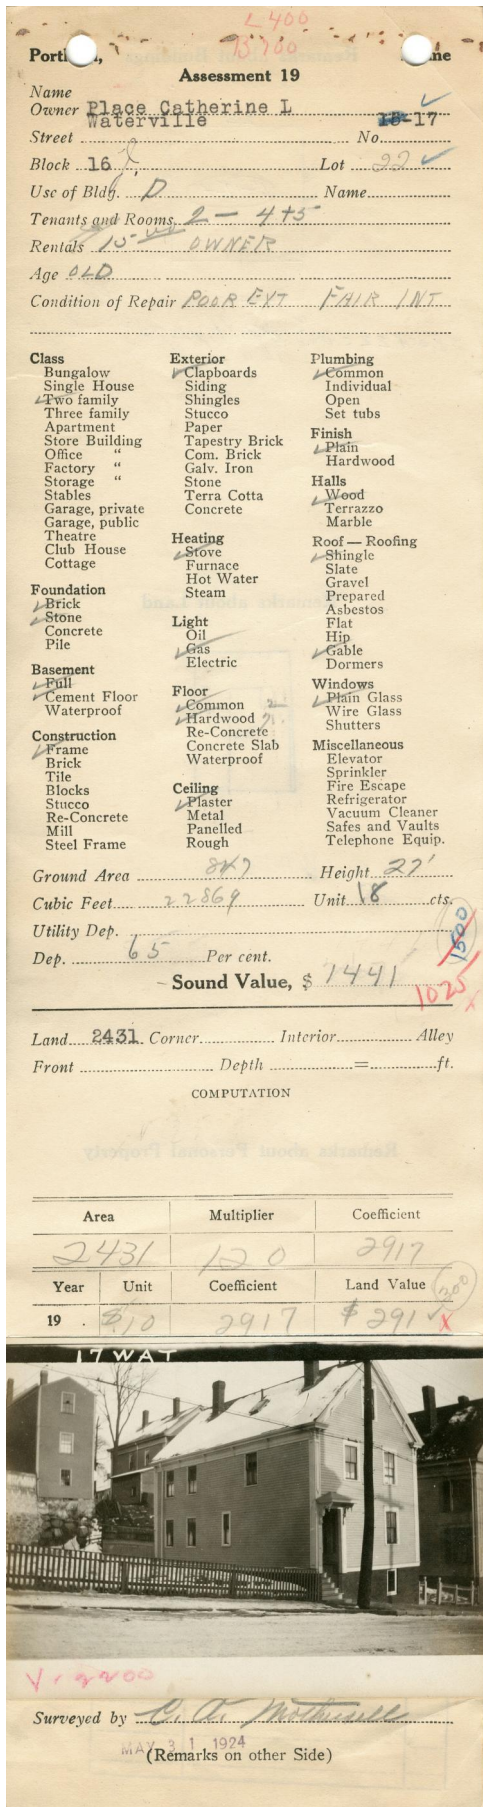 L 400
B 700
Portland, Maine
Assessment 19
Name
Owner Place Catherine L
Waterville 15-17
Street No.
Block 16 Lot 22
Use of Bldg. D Name
Tenants and Rooms 2 - 4+5
Rentals 15 OWNER
Age OLD
Condition of Repair POOR EXT FAIR INT
Class
Bungalow
Single House
Two family
Three family
Apartment
Store Building
Office "
Factory "
Storage "
Stables
Garage, private
Garage, public
Theatre
Club House
Cottage
Foundation
Brick
Stone
Concrete
Pile
Basement
Full
Cement Floor
Waterproof
Construction
Frame
Brick
Tile
Blocks
Stucco
Re-Concrete
Mill
Steel Frame
Exterior
Clapboards
Siding
Shingles
Stucco
Paper
Tapestry Brick
Com. Brick
Galv. Iron
Stone
Terra Cotta
Concrete
Heating
Stove
Furnace
Hot Water
Steam
Light
Oil
Gas
Electric
Floor
Common
Hardwood
Re-Concrete
Concrete Slab
Waterproof
Ceiling
Plaster
Metal
Panelled
Rough
Plumbing
Common
Individual
Open
Set tubs
Finish
Plain
Hardwood
Halls
Wood
Terrazzo
Marble
Roof — Roofing
Shingle
Slate
Gravel
Prepared
Asbestos
Flat
Hip
Gable
Dormers
Windows
Plain Glass
Wire Glass
Shutters
Miscellaneous
Elevator
Sprinkler
Fire Escape
Refrigerator
Vacuum Cleaner
Safes and Vaults
Telephone Equip.
Ground Area 847 Height 27'
Cubic Feet 22869 Unit 18 cts.
Utility Dep.
1500
Dep. 65 Per cent.
Sound Value, $ 1441
1025
Land 2431 Corner Interior Alley
Front Depth = ft.
COMPUTATION
Area Multiplier Coefficient
2431 120 2917
Year Unit Coefficient Land Value 300
19 . $.10 2917 $291
17 WAT
V. 2200
Surveyed by C. A.
MAY 31 1924
(Remarks on other Side)